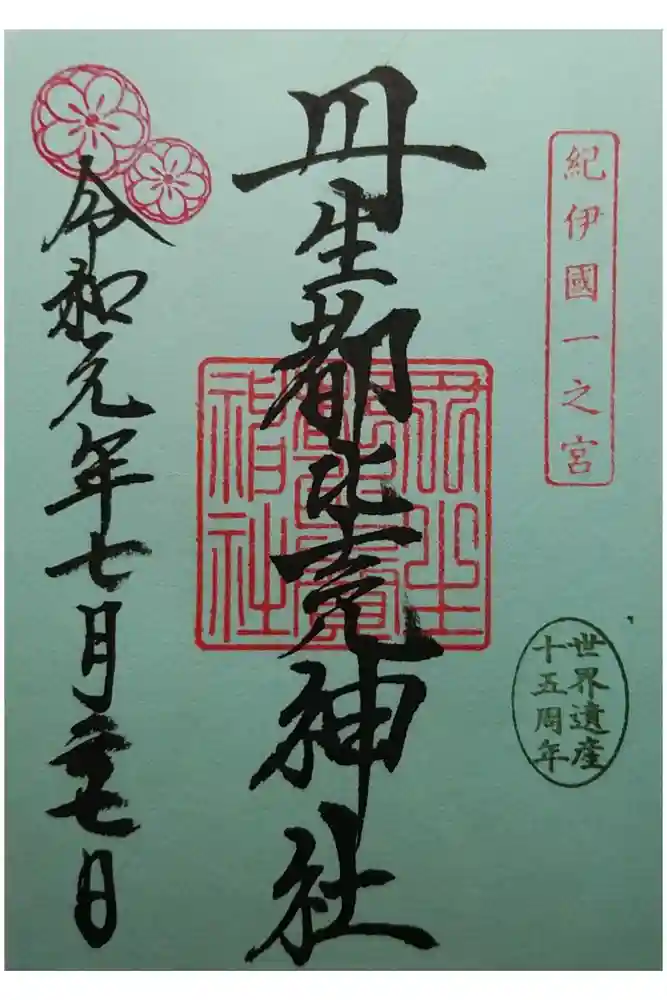 紀伊國一之宮
世界遺産
十五周年
丹生都比売神社
令和元年七月二十七日